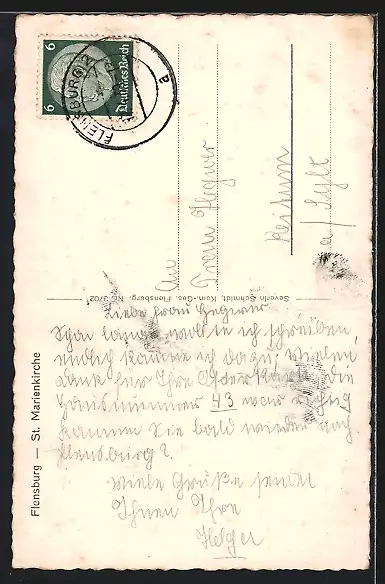 Flensburg — St. Marienkirche
Severin Schmidt, Kom.-Ges. Flensburg. Nr. 3702
6 Deutsches Reich 6
FLENSBURG 2
a
An
Frau Hegwer
Keitum
a / Sylt
Liebe Frau Hegwer
Schon lange wollte ich schreiben,
endlich komme ich dazu, Vielen
Dank für Ihre Osterkarte, die
Hausnummer 43 war richtig
kommen Sie bald wieder nach
Flensburg?
Viele Grüße sendet
Ihnen Ihre
Helger